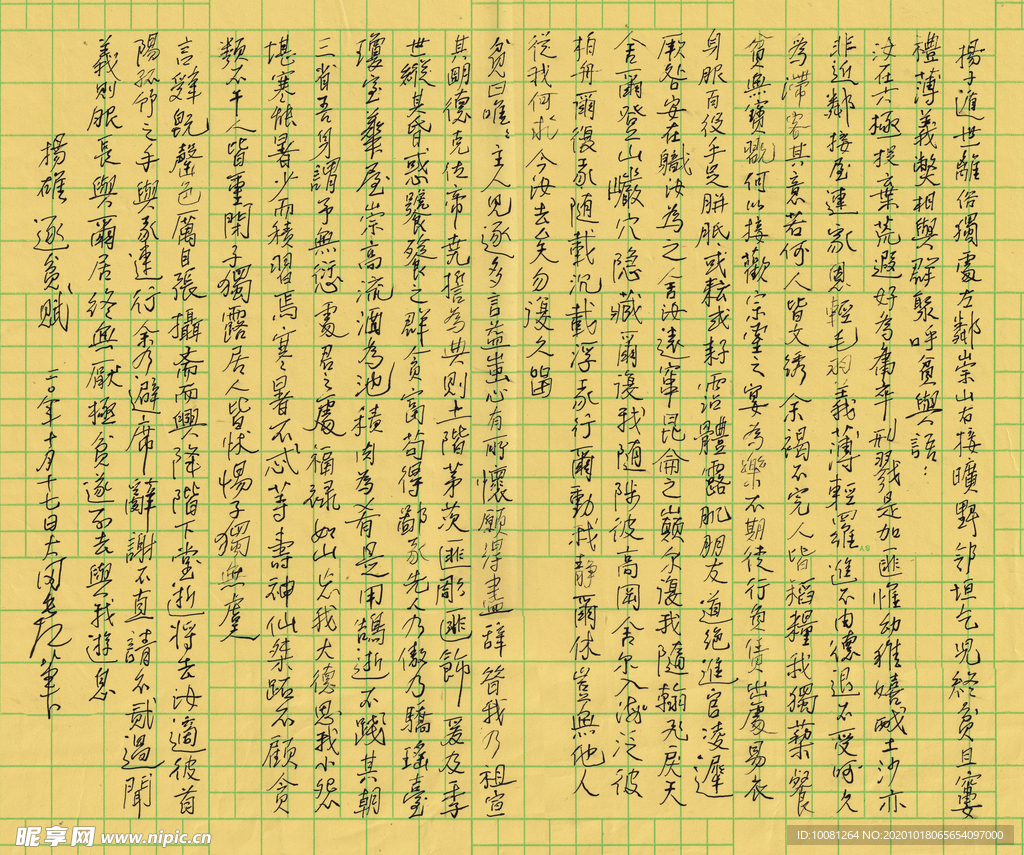 揚子遁世離俗獨處左鄰崇山右接曠野鄰垣乞児終貧且窶
禮薄義獘相與群聚呼貧與語：
汝在六極投棄荒遐好為庸卒刑戮是加匪惟幼稚嬉戲土沙亦
非近鄰接屋連家恩輕毛羽義薄輕羅進不由德退不受呵久
為滯客其意若何人皆文綉余褐不完人皆稻糧我獨藜餐
貧無寶翫何以接歡宗室之宴為樂不期徒行負賃出處易衣
身服百役手足胼胝或耘或耔霑體露肌朋友道絕進官凌遲
厥咎安在職汝為之舍汝遠竄昆侖之巔尔復我隨翰飛戾天
舍爾登山巖穴隐藏爾復我随陟彼高岡舍尔入海泛彼
柏舟爾復我随載沉載浮我行爾動我靜爾休豈無他人
從我何求今汝去矣勿復久留
貧曰唯唯主人見逐多言益嗤心有所懷願得盡辭昔我乃祖宣
其明德克佐帝堯誓為典則土階茅茨匪彫匪飾爰及季
世縱其昏惑饕餮之群貪富苟得鄙我先人乃傲乃驕瑤臺
瓊室華屋崇高流酒為池積肉為肴是用鵠逝不踐其朝
三省吾身謂予無愆處君之處福禄如山忘我大德思我小怨
堪寒能暑少而積習焉寒暑不忒等壽神仙桀跖不顧貪
類不干人皆重閉子獨露居人皆怵惕子獨無虞
言辭既罄色厲目張攝齋而興降階下堂逝將去汝適彼首
陽孤竹之子與我連行余乃避席辭謝不直請不貳過聞
義則服長與爾居終無厭極貧遂不去與我遊息
揚雄 逐貧賦 二〇年十月十七日大同
昵享网 www.nipic.cn
ID:10081264 NO:20201018065654097000